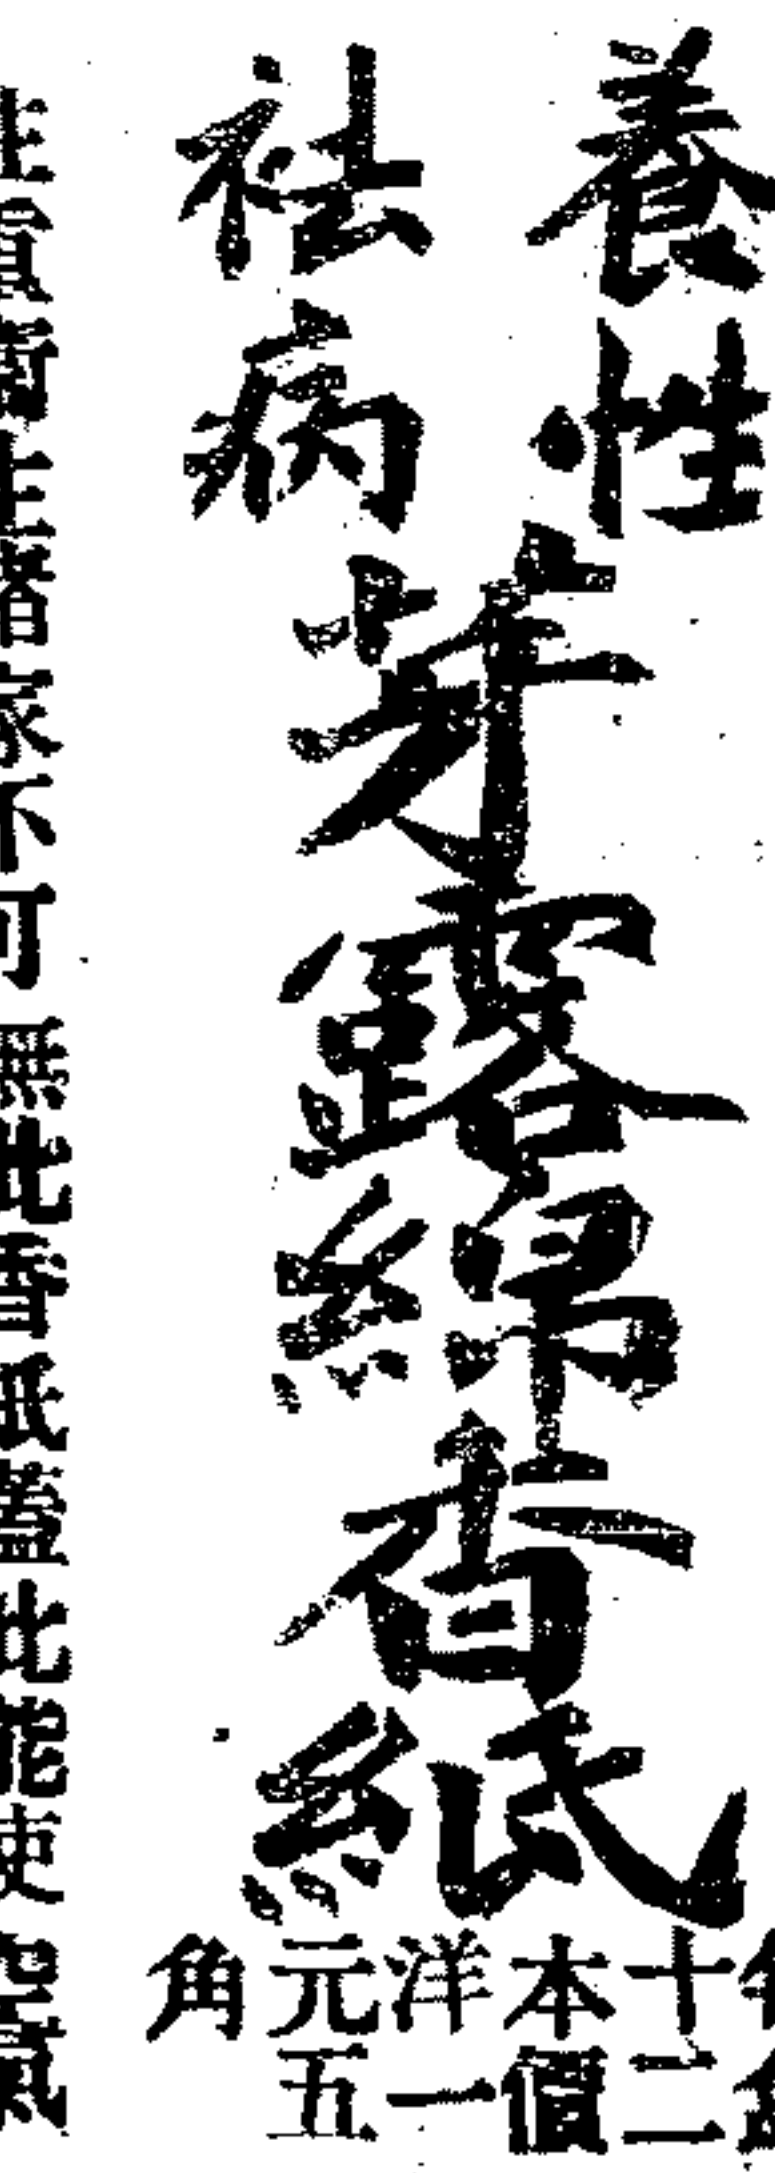 養性
祛病
芽露綿香紙
十二
本價
洋一
元五
角
衛生諸家不可無此香紙蓋此能使空氣